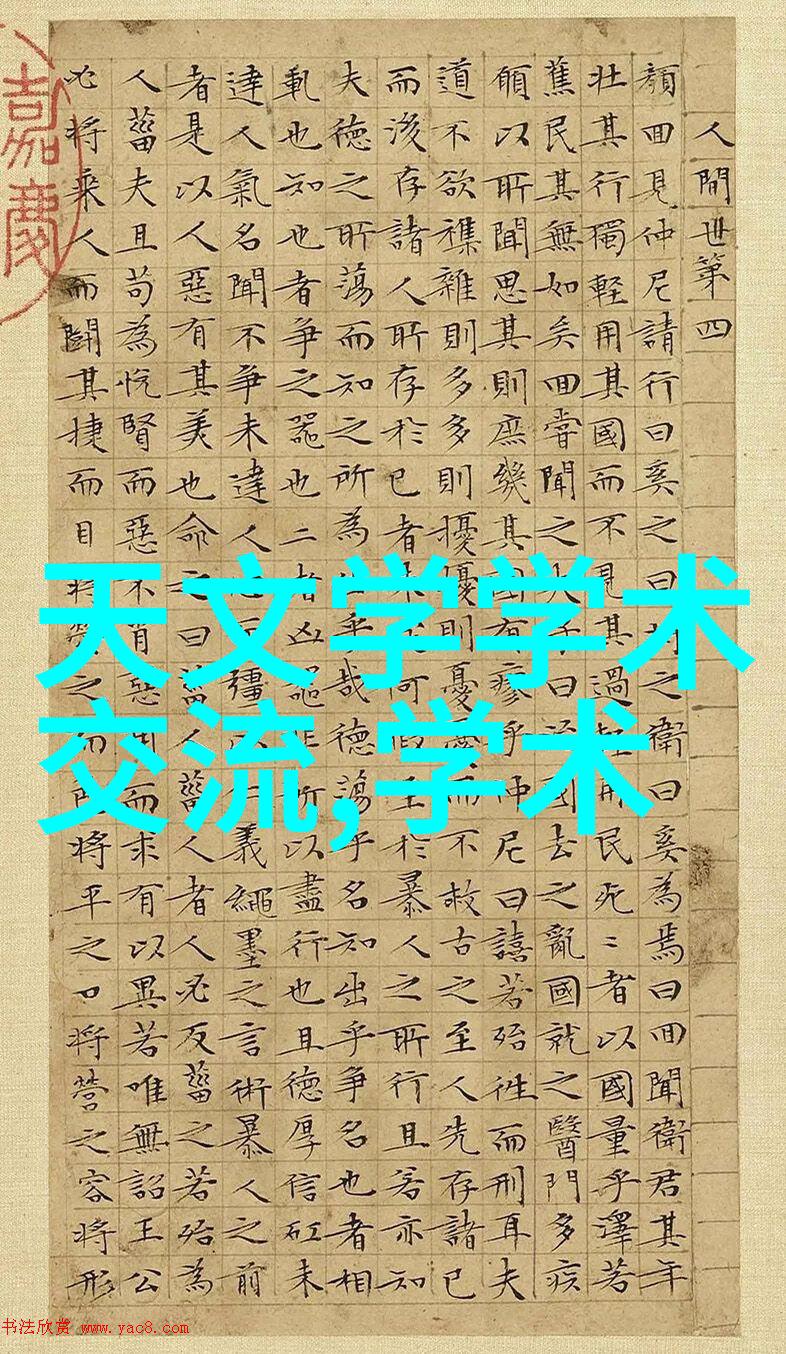 人間世第四
顏囬見仲尼請行曰奚之曰之衛曰奚為焉曰囬聞衛君其年
壯其行獨輕用其國而不見其過輕用民死〻者以國量乎澤若
蕉民其無如矣囬嘗聞之夫子曰國去之亂國就之醫門多疾
願以所聞思其則庶幾其國有瘳乎仲尼曰譆若殆徃而刑耳夫
道不欲襍雜則多多則擾擾則憂而不救古之至人先存諸已
而後存諸人所存於已者未何暇至於暴人之所行且若亦知
夫德之所蕩而知之所為乎哉德蕩乎名知出乎爭名也者相
軋也知也者爭之噐也二者凶噐非所以盡行也且德厚信矼未
達人氣名聞不爭未達人而彊以仁義繩墨之言術暴人之前
者是以人惡有其美也命之曰菑人菑人者人必反菑之若殆為
人菑夫且苟為悅賢而惡不肖惡用而求有以異若唯無詔王公
必將乗人而鬬其捷而目將熒之而將平之口將營之容將形
嘉慶
天文学学术
交流,学术
书法欣赏 www.yac8.com